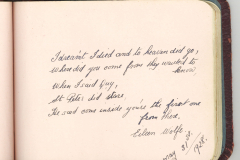 I dreamt I died and to heaven did go,
Where did you come from they wanted to
know
When I said Guy,
St Peter did stare
He said come inside you're the first one
from there.
Eileen Wolfe